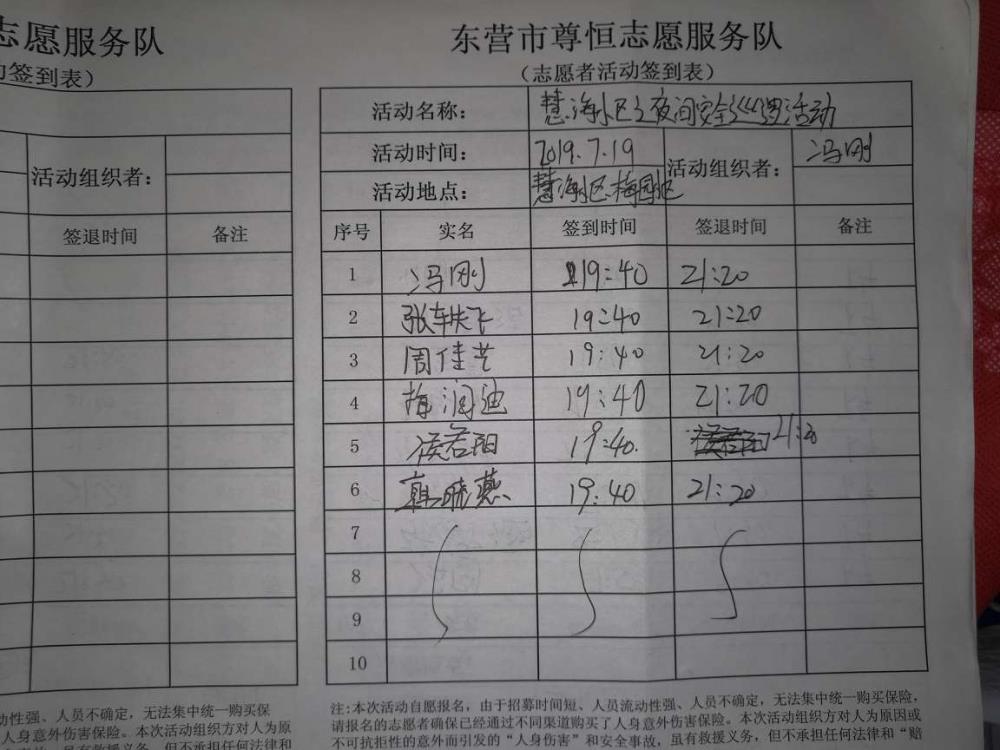 志愿服务队
签到表）
活动组织者：
签退时间 备注
动性强、人员不确定，无法集中统一购买保
人身意外伤害保险。本次活动组织方对人为原
但不承担任何法律和
东营市尊恒志愿服务队
（志愿者活动签到表）
活动名称： 慧海小区之夜间安全巡逻活动
活动时间： 2019.7.19 活动组织者： 冯刚
活动地点： 慧海小区.梅园小区
序号 实名 签到时间 签退时间 备注
1 冯刚 19:40 21:20
2 张轶飞 19:40 21:20
3 周佳艺 19:40 21:20
4 梅润迪 19:40 21:20
5 侯若阳 19:40. 21:20
6 晓燕 19:40 21:20
7
8
9
10
注：本次活动自愿报名，由于招募时间短、人员流动性强、人员不确定，无法集中统一购买保险，
请报名的志愿者确保已经通过不同渠道购买了人身意外伤害保险。本次活动组织方对人为原因或
不可抗拒性的意外而引发的“人身伤害”和安全事故，虽有救援义务，但不承担任何法律和“赔